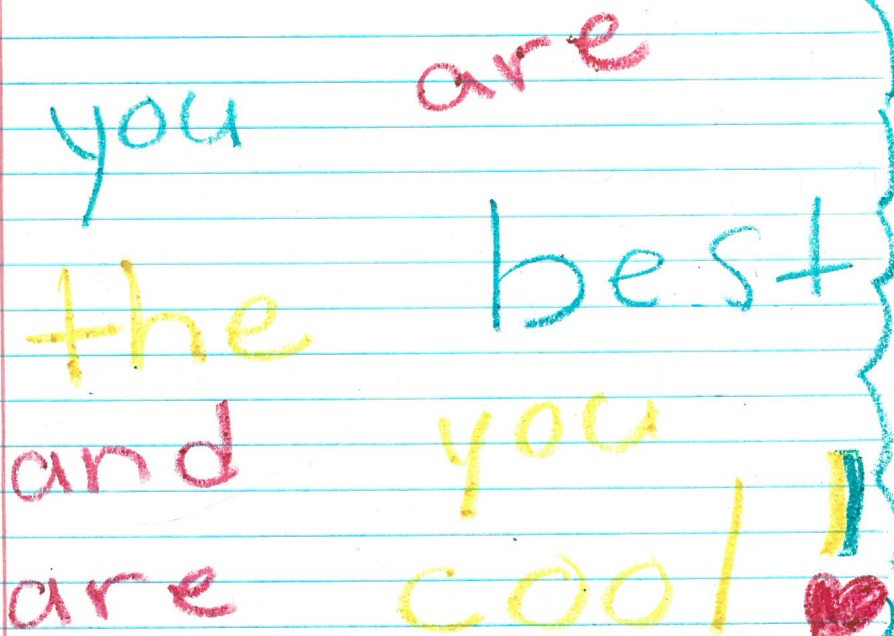 you are
the best
and you
are cool!